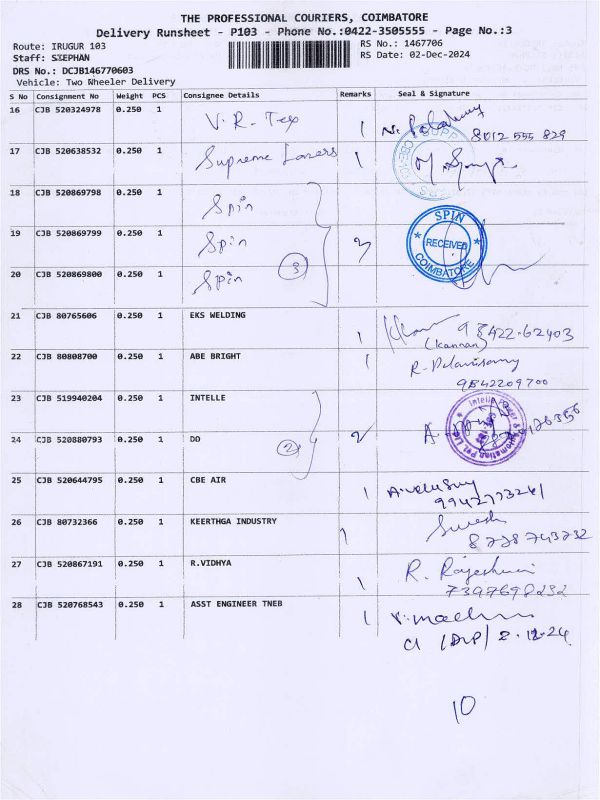 THE PROFESSIONAL COURIERS, COIMBATORE
Delivery Runsheet - P103 - Phone No.:0422-3505555 - Page No.:3
Route: IRUGUR 103
RS No.: 1467706
Staff: STEPHAN
RS Date: 02-Dec-2024
DRS No.: DCJB146770603
Vehicle: Two Wheeler Delivery
S No Consignment No Weight PCS Consignee Details Remarks Seal & Signature
16 CJB 520324978 0.250 1 V. R. Tex 1
8012 555 829
17 CJB 520638532 0.250 1 Supreme 1
18 CJB 520869798 0.250 1 Spin
19 CJB 520869799 0.250 1 Spin 3 3
SPIN RECEIVED COIMBATORE
20 CJB 520869800 0.250 1 Spin
21 CJB 80765606 0.250 1 EKS WELDING 1 98422-62403
(Kannan)
22 CJB 80808700 0.250 1 ABE BRIGHT 1 R.
9842209700
23 CJB 519940204 0.250 1 INTELLE
24 CJB 520880793 0.250 1 DD 2 2
25 CJB 520644795 0.250 1 CBE AIR 1
26 CJB 80732366 0.250 1 KEERTHGA INDUSTRY 1 Suresh
8778743732
27 CJB 520867191 0.250 1 R.VIDHYA 1 R. Rajeshwari
7397698232
28 CJB 520768543 0.250 1 ASST ENGINEER TNEB 1
2.12.24
10